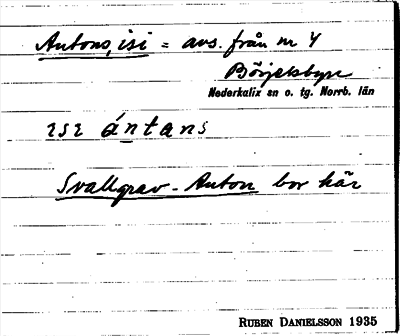 Antons, isi = avs. från nr 4
Börjelsbyn
Nederkalix sn o. tg. Norrb. län
ısı ántans
Svallgrav-Anton bor här
RUBEN DANIELSSON 1935